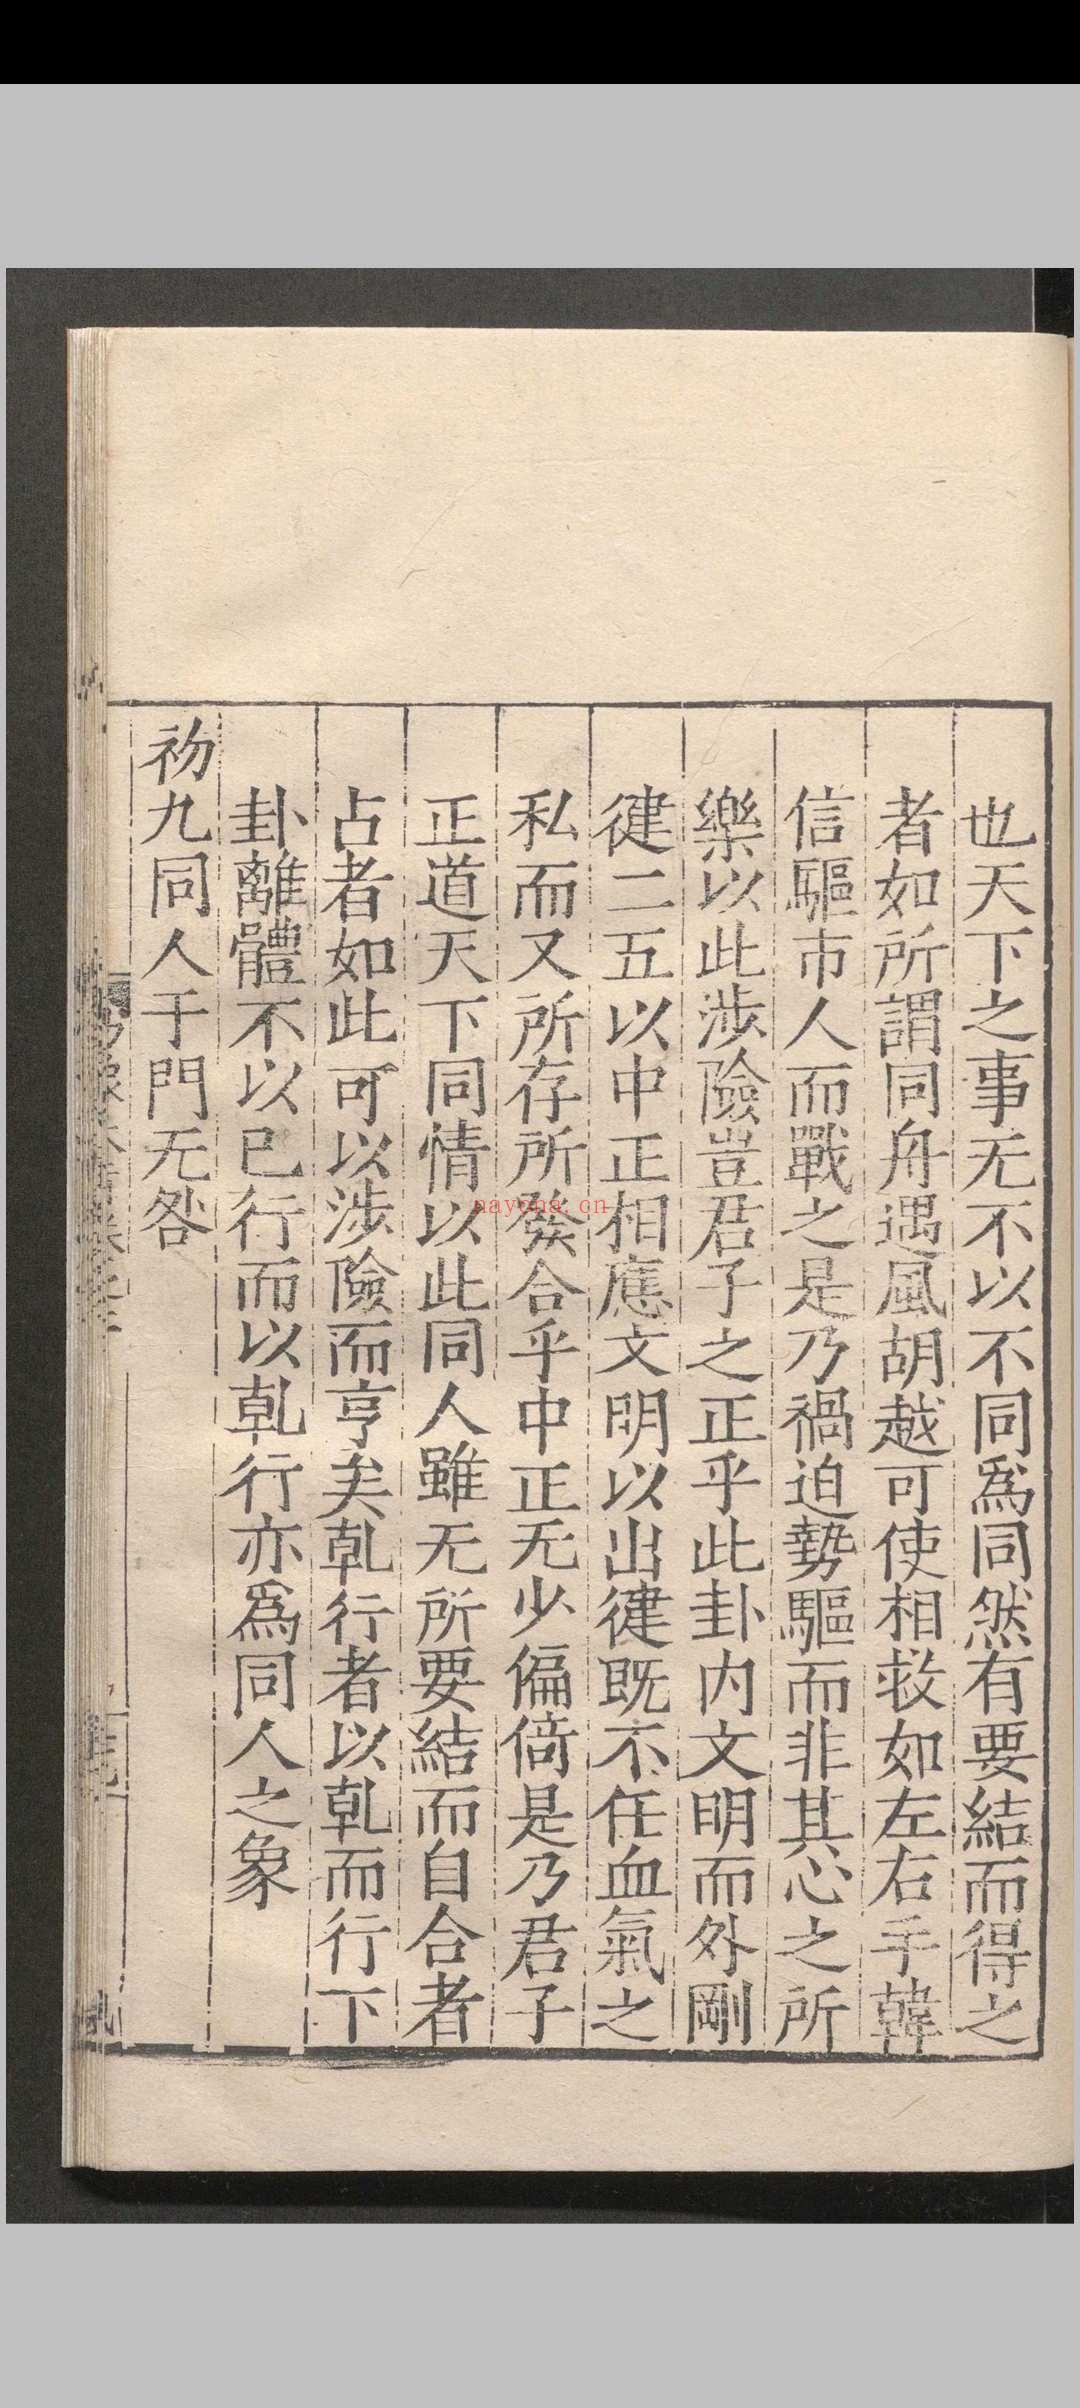 也天下之事无不以不同爲同然有要結而得之
者如所謂同舟遇風胡越可使相救如左右手韓
信驅市人而戰之是乃禍迫勢驅而非其心之所
樂以此涉險豈君子之正乎此卦内文明而外剛
健二五以中正相應文明以出健既不任血氣之
私而又所存所發合乎中正无少偏倚是乃君子
正道天下同情以此同人雖无所要結而自合者
占者如此可以涉險而亨矣乹行者以乹而行下
卦離體不以已行而以乹行亦爲同人之象
初九同人于門无咎
nayona.cn